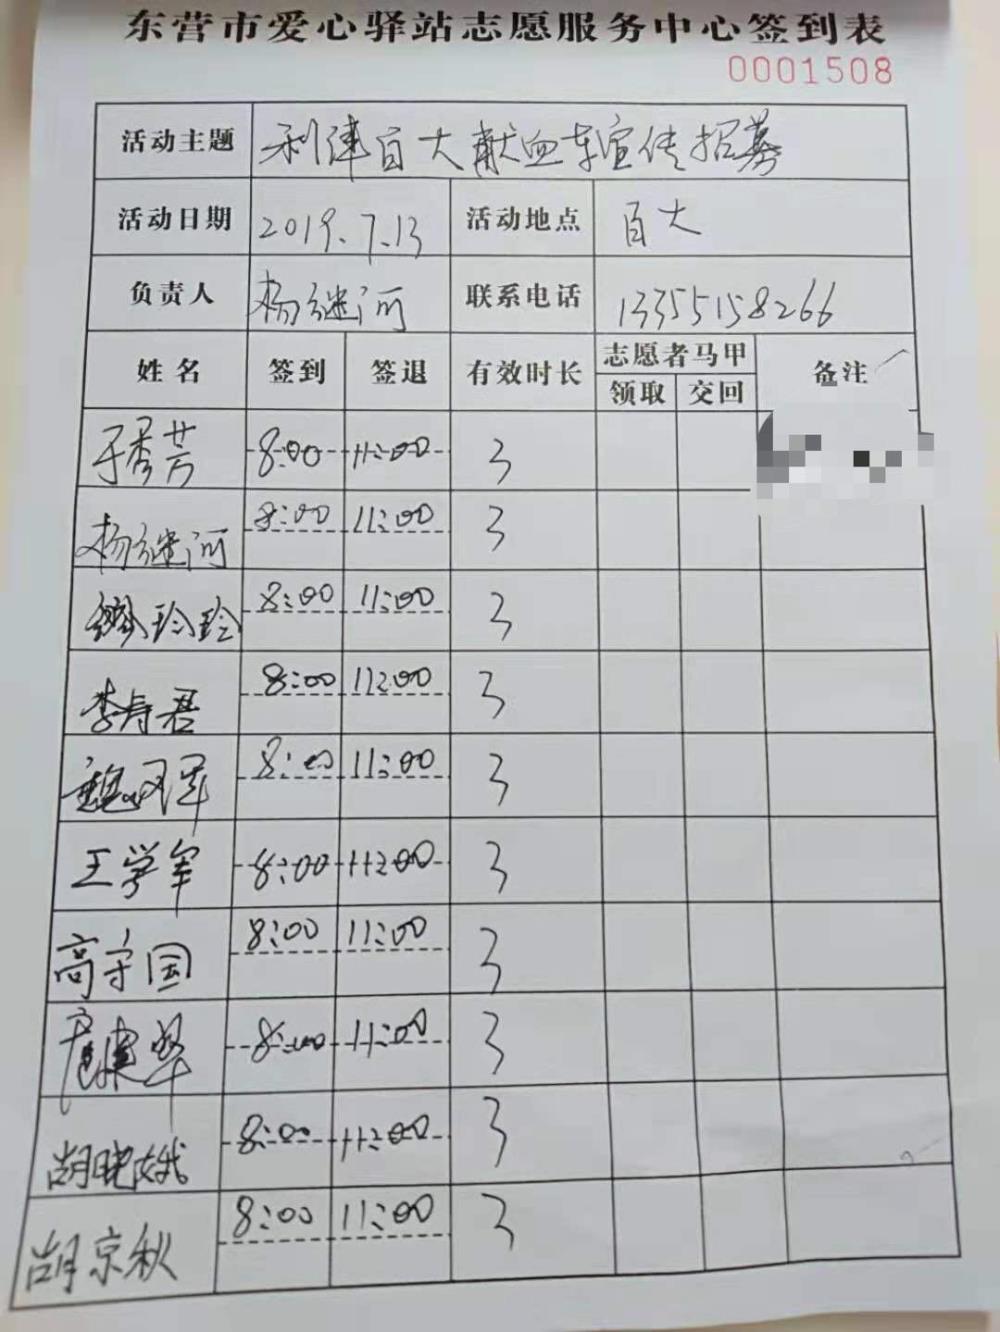 东营市爱心驿站志愿服务中心签到表
0001508
活动主题 利津百大献血车宣传招募
活动日期 2019.7.13 活动地点 百大
负责人 杨继河 联系电话 13355158266
姓名 签到 签退 有效时长 志愿者马甲 备注
领取 交回
于秀芳 8:00 11:00 3
杨继河 8:00 11:00 3
玲玲 8:00 11:00 3
李寿君 8:00 11:00 3
魏 军 8:00 11:00 3
王学军 8:00 11:00 3
高守国 8:00 11:00 3
8:00 11:00 3
胡晓娥 8:00 11:00 3
胡京秋 8:00 11:00 3